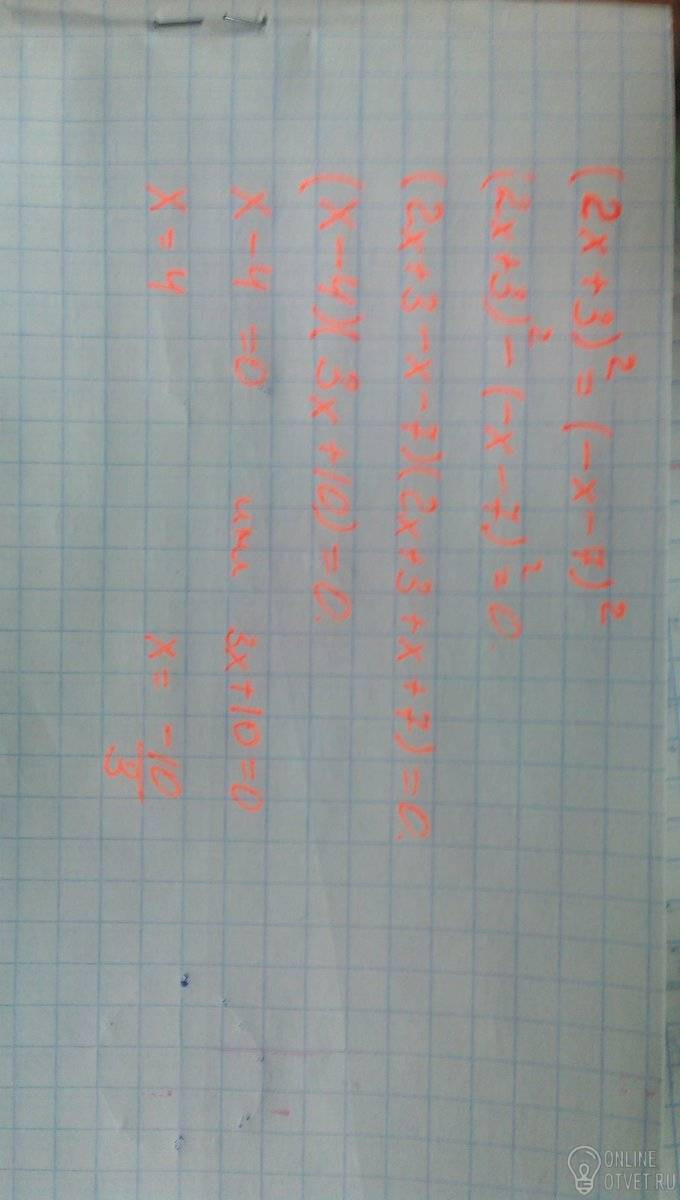 (2x+3)² = (-x-7)²
(2x+3)² - (-x-7)² = 0.
(2x+3-x-7)(2x+3+x+7) = 0.
(x-4)(3x+10) = 0.
x-4 = 0 или 3x+10 = 0
x = 4 x = -10/3
ONLINE
OTVET.RU